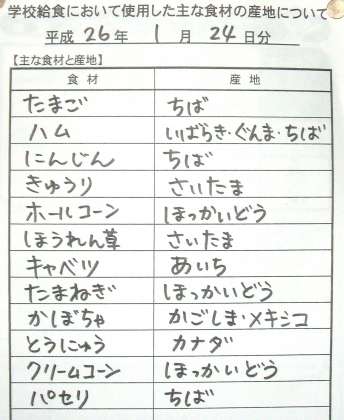 学校給食において使用した主な食材の産地について
平成 26 年 1 月 24 日分
【主な食材と産地】
食材 産地
たまご ちば
ハム いばらき・ぐんま・ちば
にんじん ちば
きゅうり さいたま
ホールコーン ほっかいどう
ほうれん草 さいたま
キャベツ あいち
たまねぎ ほっかいどう
かぼちゃ かごしま・メキシコ
とうにゅう カナダ
クリームコーン ほっかいどう
パセリ ちば